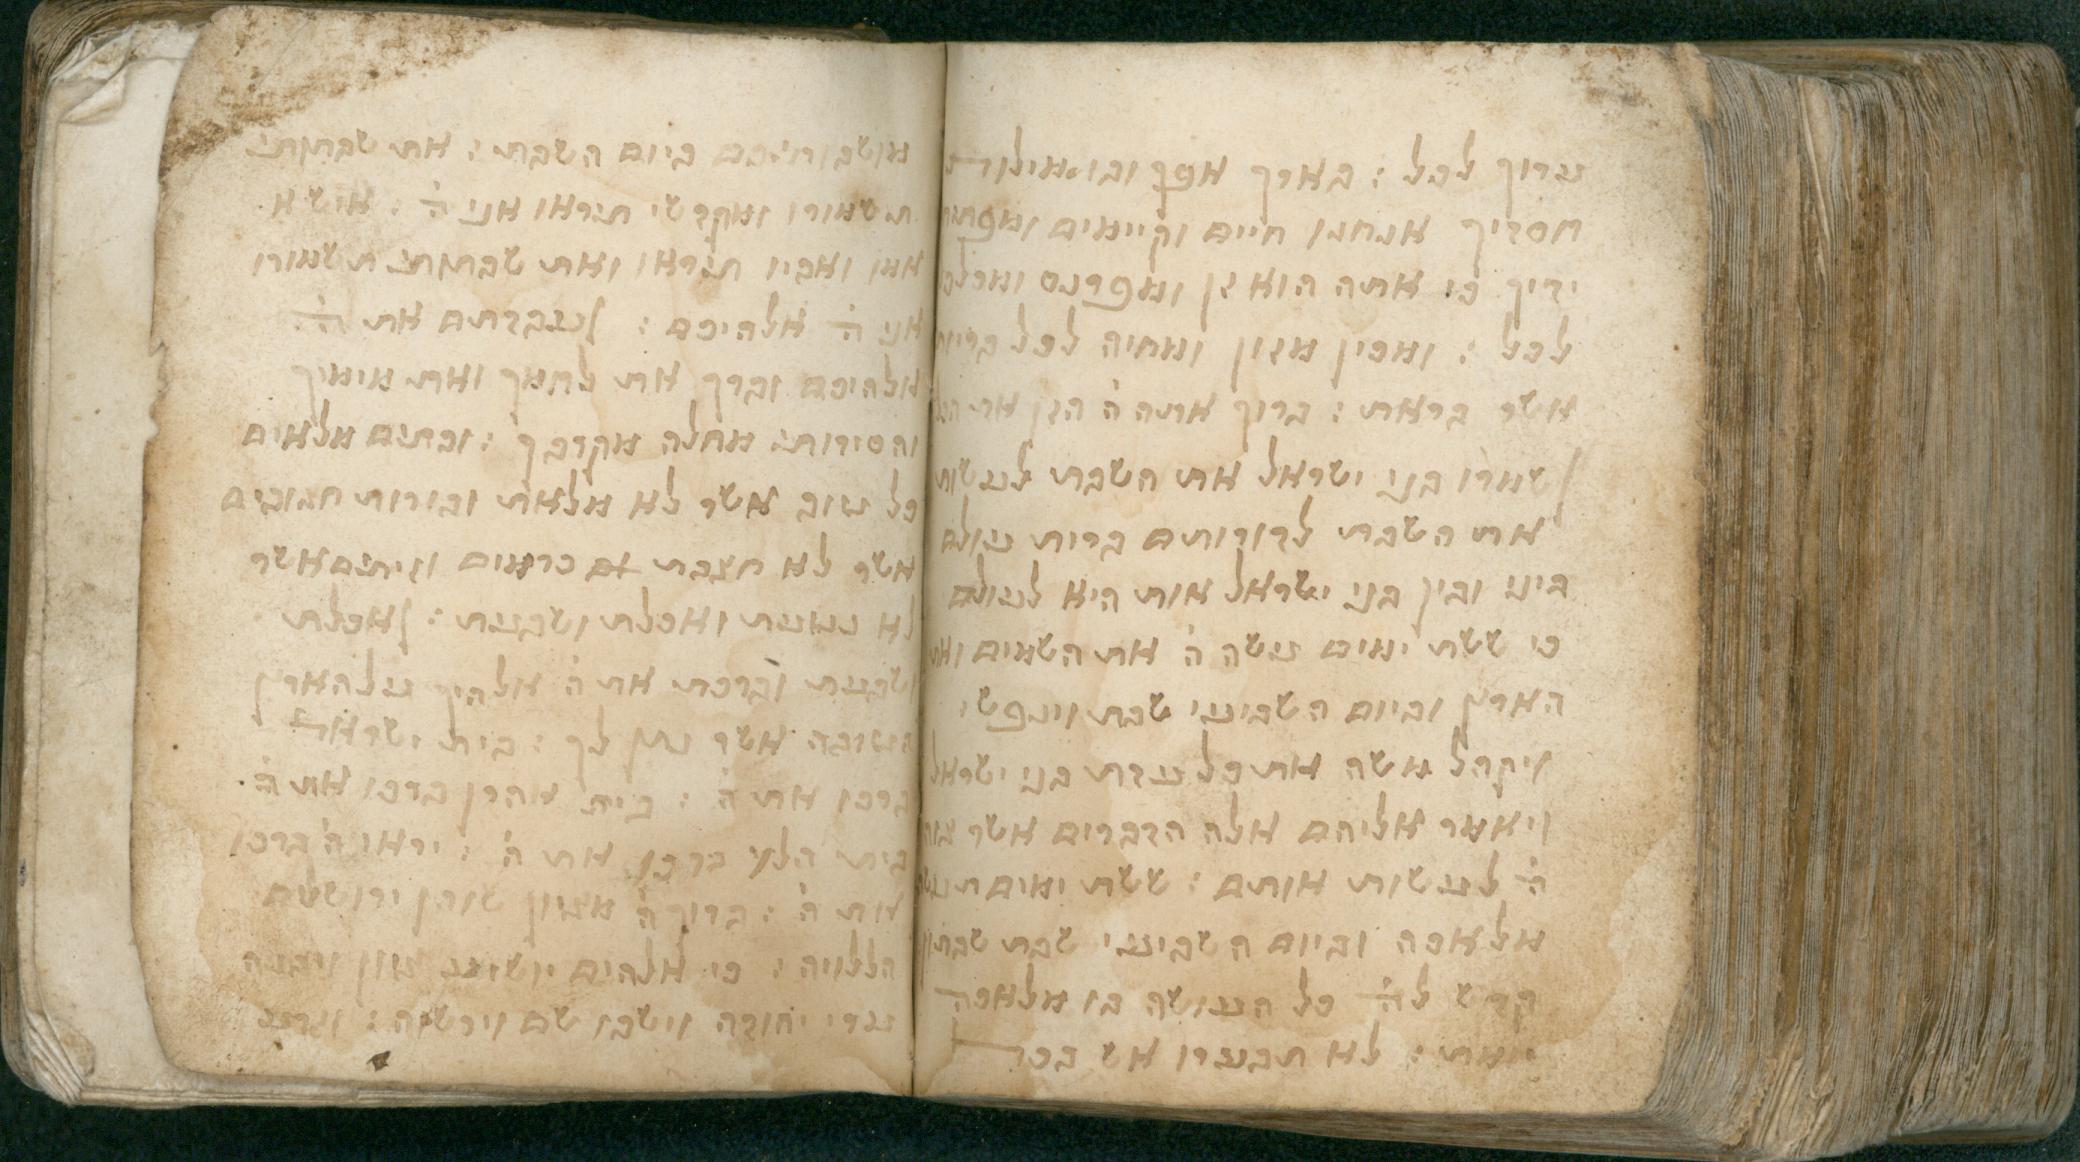 ערוך לכל : באורך אפך ובו מילוי
חסדיך אנחנו חיים וקיימים ומפתח
ידיך כי אתה הוא זן ומפרנס ומכלכל
לכל : ומכין מזון ומחיה לכל בריות
אשר בראת : ברוך אתה ה הזן את הכל
ושמרו בני ישראל את השבת לעשות
את השבת לדורותם ברית עולם
ביני ובין בני ישראל אות היא לעולם
כי ששת ימים עשה ה את השמים ואת
הארץ וביום השביעי שבת וינפש
ויקהל משה את כל עדת בני ישראל
ויאמר אליהם אלה הדברים אשר צוה
ה לעשות אותם : ששת ימים תעשה
מלאכה וביום השביעי שבת שבתון
קדש לה כל העושה בו מלאכה
יומת : לא תבערו אש בכל
מושבותיכם ביום השבת : את שבתתי
תשמורו ומקדשי תיראו אני ה : איש א
אמו ואביו תיראו ואת שבתתי תשמורו
אני ה אלהיכם : ועבדתם את ה
אלהיכם וברך את לחמך ואת מימיך
והסירותי מחלה מקרבך : ובתים מלאים
כל טוב אשר לא מלאת ובורות חצובים
אשר לא חצבת כרמים וזיתים אשר
לא נטעת ואכלת ושבעת : ואכלת
ושבעת וברכת את ה אלהיך על הארץ
הטובה אשר נתן לך : בית ישראל
ברכו את ה : בית אהרן ברכו את ה
בית הלוי ברכו את ה : יראי ה ברכו
את ה : ברוך ה מציון שוכן ירושלם
הללויה : כי אלהים יושיע ציון ויבנה
ערי יהודה וישבו שם וירשוה : וזרע